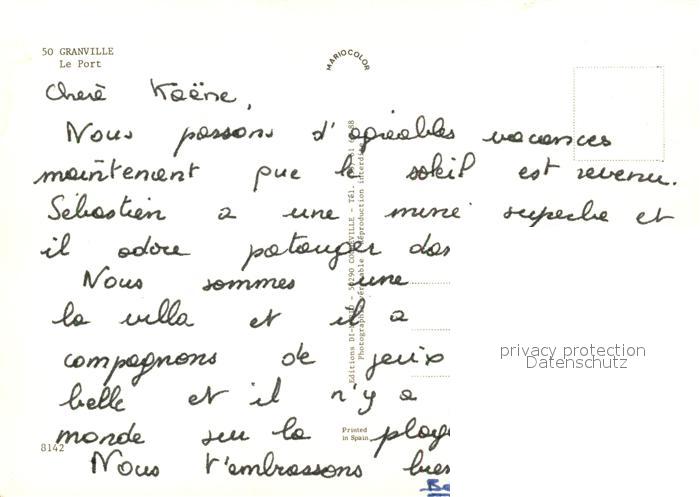 50 GRANVILLE
Le Port
MARIOCOLOR
Chère Kaëne,
Nous passons d'agréables vacances
maintenant que le soleil est revenu.
Sébastien a une mine superbe et
il adore patauger dans
Nous sommes une
la villa et il a
compagnons de jeux
belle et il n'y a
monde sur la plage
Nous t'embrassons bien
8142
Printed
in Spain
Photographie véritable - Reproduction interdite
privacy protection
Datenschutz